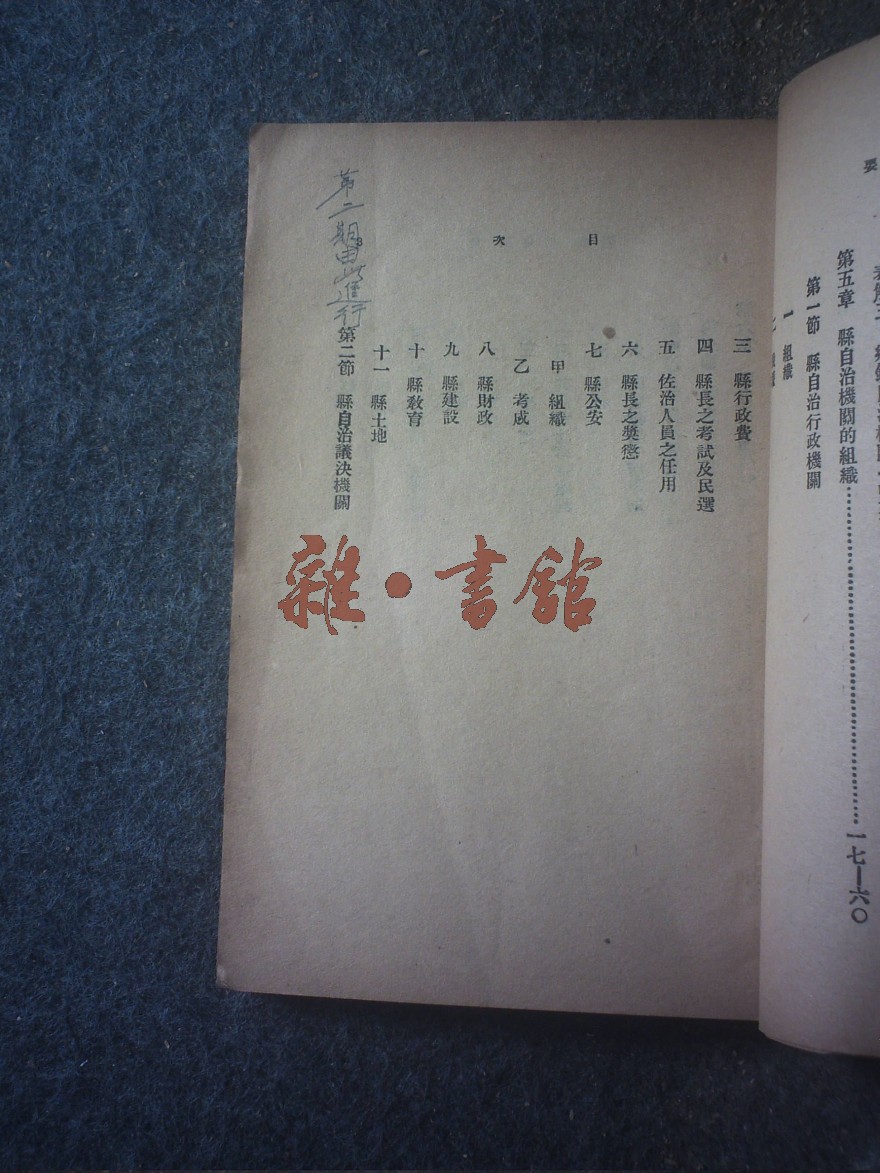 要
第五章　縣自治機關的組織⋯⋯⋯⋯⋯⋯⋯⋯⋯⋯一七—六〇
第一節　縣自治行政機關
一　組織
目次
三　縣行政費
四　縣長之考試及民選
五　佐治人員之任用
六　縣長之奬懲
七　縣公安
甲　組織
乙　考成
八　縣財政
九　縣建設
十　縣敎育
十一　縣土地
第二節　縣自治議決機關
第二期由此進行
3
雜•書館